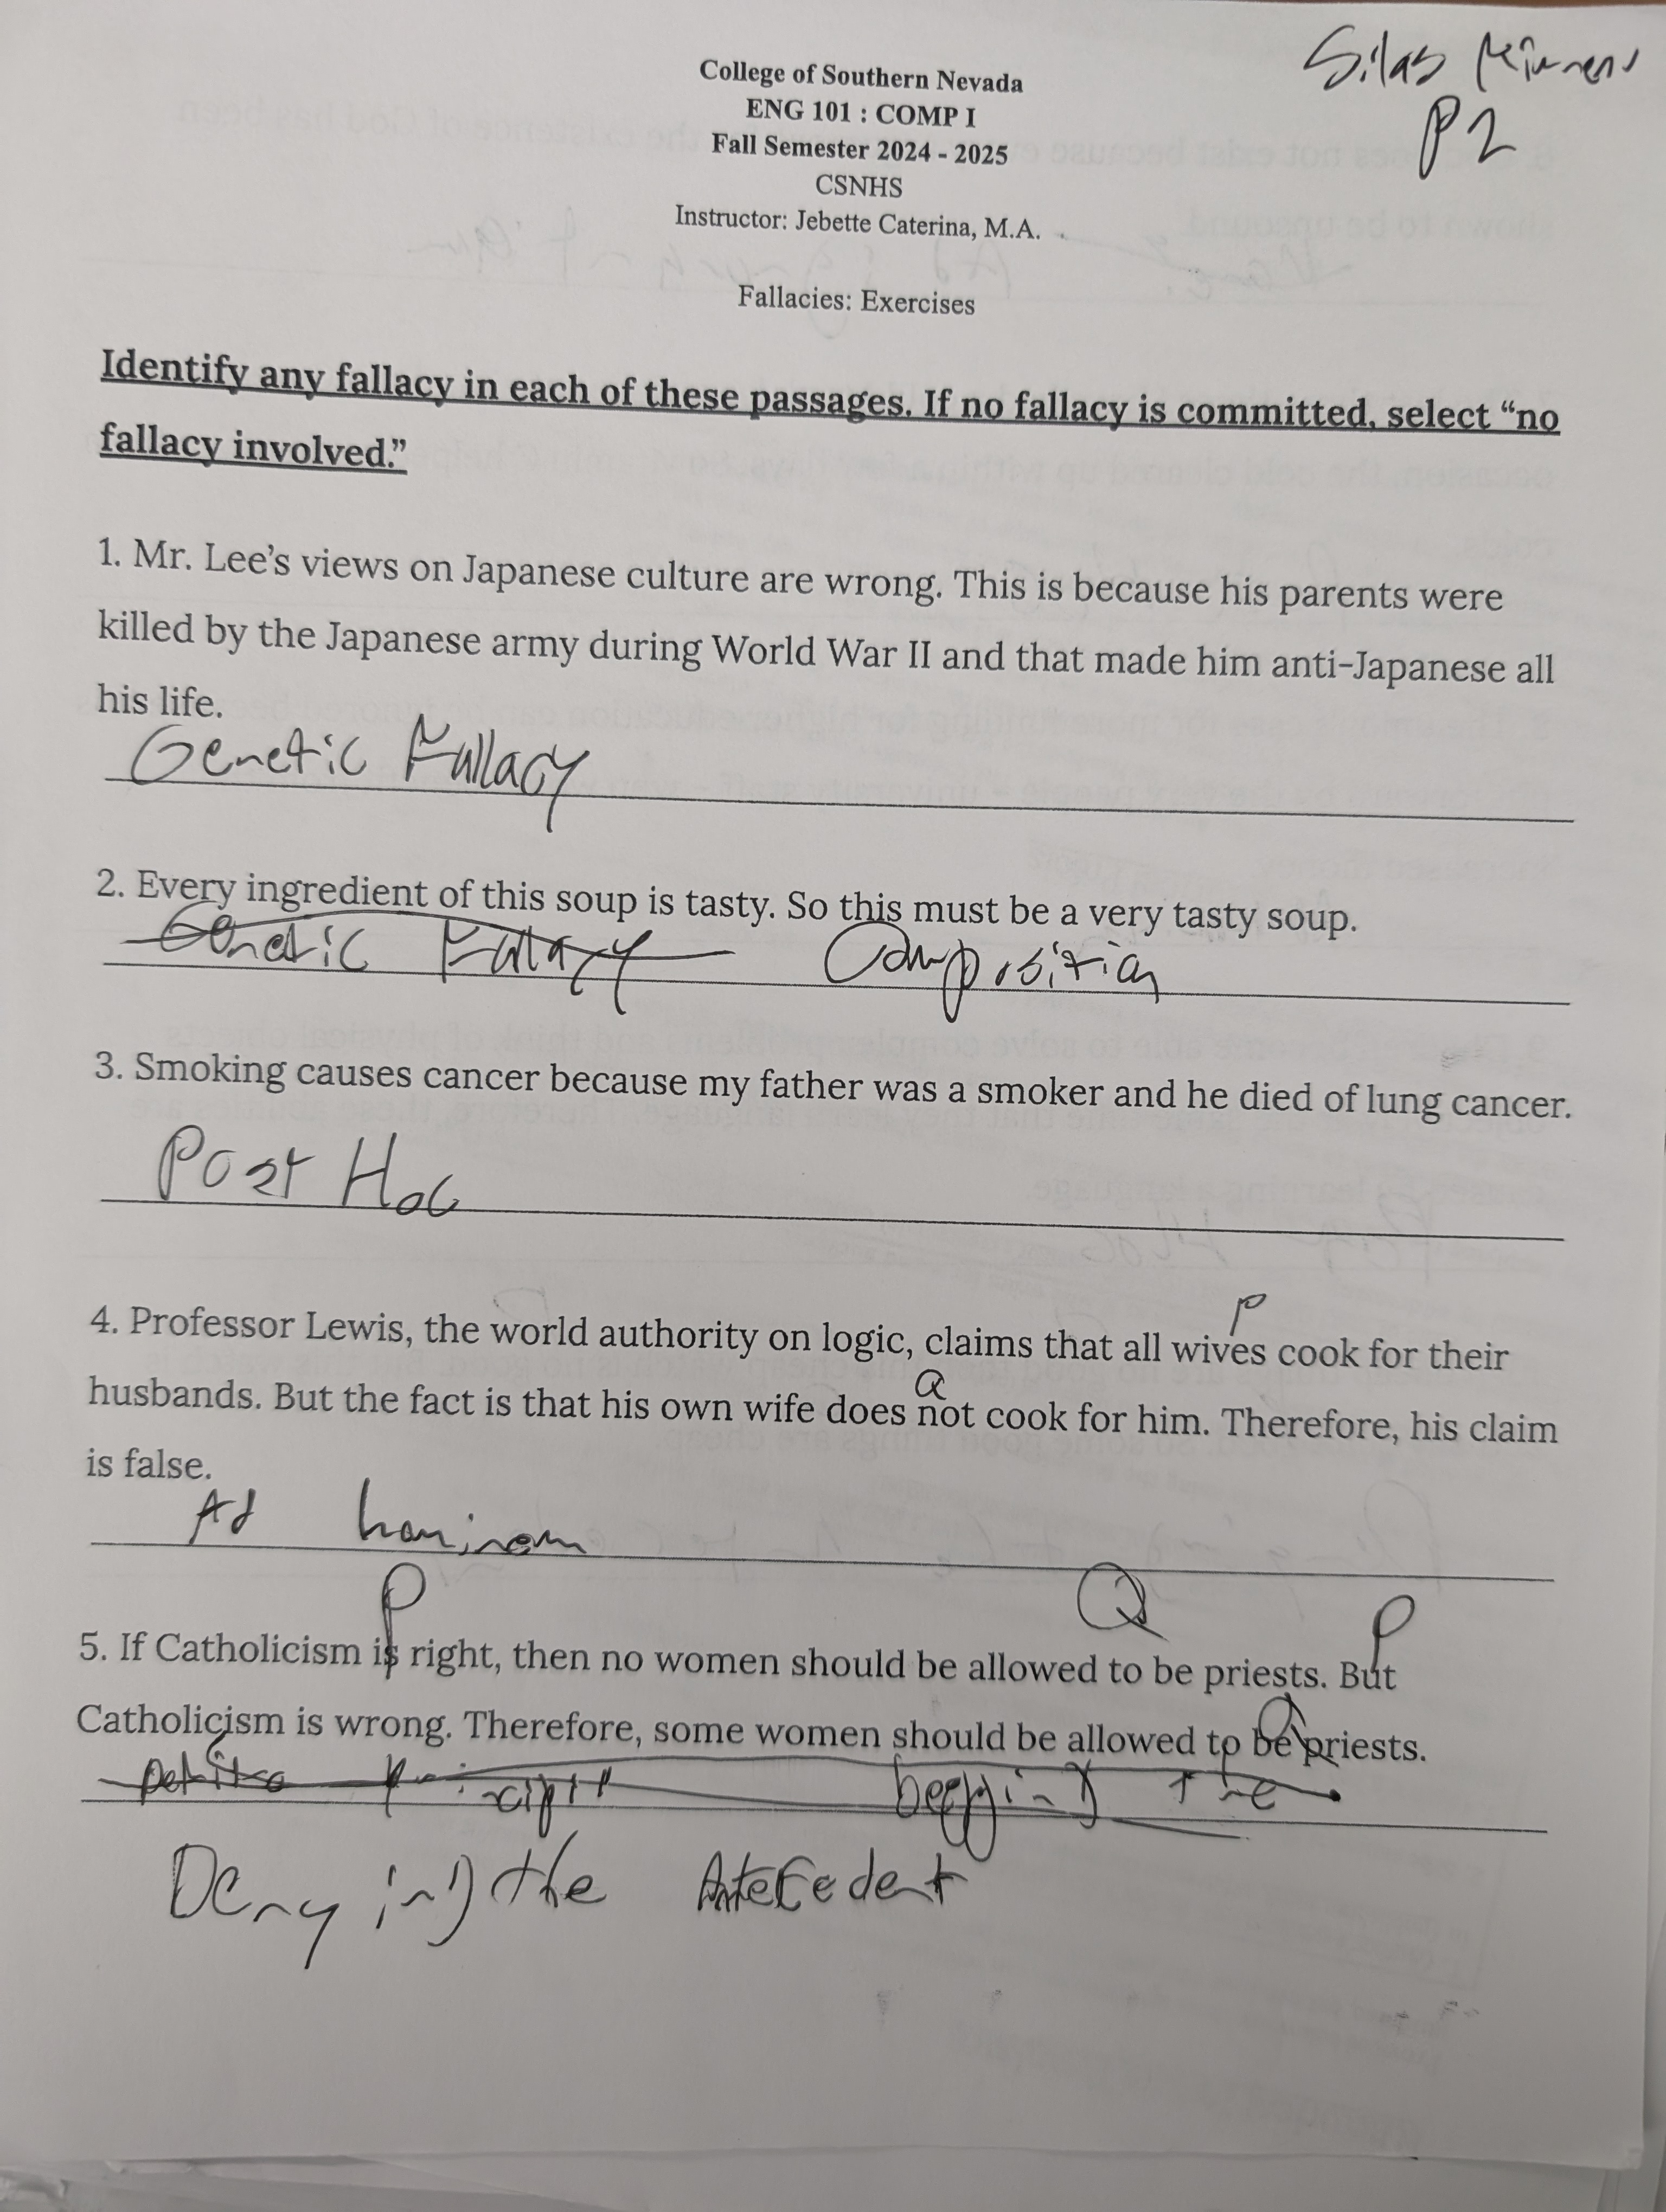 Silas
College of Southern Nevada
ENG 101 : COMP I
P2
Fall Semester 2024 - 2025
CSNHS
Instructor: Jebette Caterina, M.A.
Fallacies: Exercises
Identify any fallacy in each of these passages. If no fallacy is committed, select “no
fallacy involved.”
1. Mr. Lee’s views on Japanese culture are wrong. This is because his parents were
killed by the Japanese army during World War II and that made him anti-Japanese all
his life.
Genetic Fallacy
2. Every ingredient of this soup is tasty. So this must be a very tasty soup.
Genetic Fallacy Composition
3. Smoking causes cancer because my father was a smoker and he died of lung cancer.
Post Hoc
P
4. Professor Lewis, the world authority on logic, claims that all wives cook for their
Q
husbands. But the fact is that his own wife does not cook for him. Therefore, his claim
is false.
Ad hominem
P Q P
5. If Catholicism is right, then no women should be allowed to be priests. But
Q
Catholicism is wrong. Therefore, some women should be allowed to be priests.
begging the
Denying the Antecedent